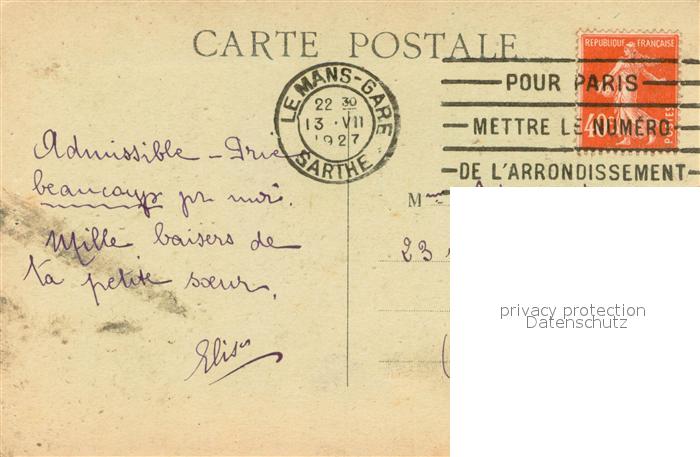 CARTE POSTALE
LE MANS-GARE
22 30
13 · VII
1927
SARTHE
REPUBLIQUE FRANÇAISE
40c
POSTES
POUR PARIS
METTRE LE NUMÉRO
DE L'ARRONDISSEMENT
Admissible - Prie
beaucoup pr moi.
Mille baisers de
ta petite sœur.
M
23
privacy protection
Datenschutz